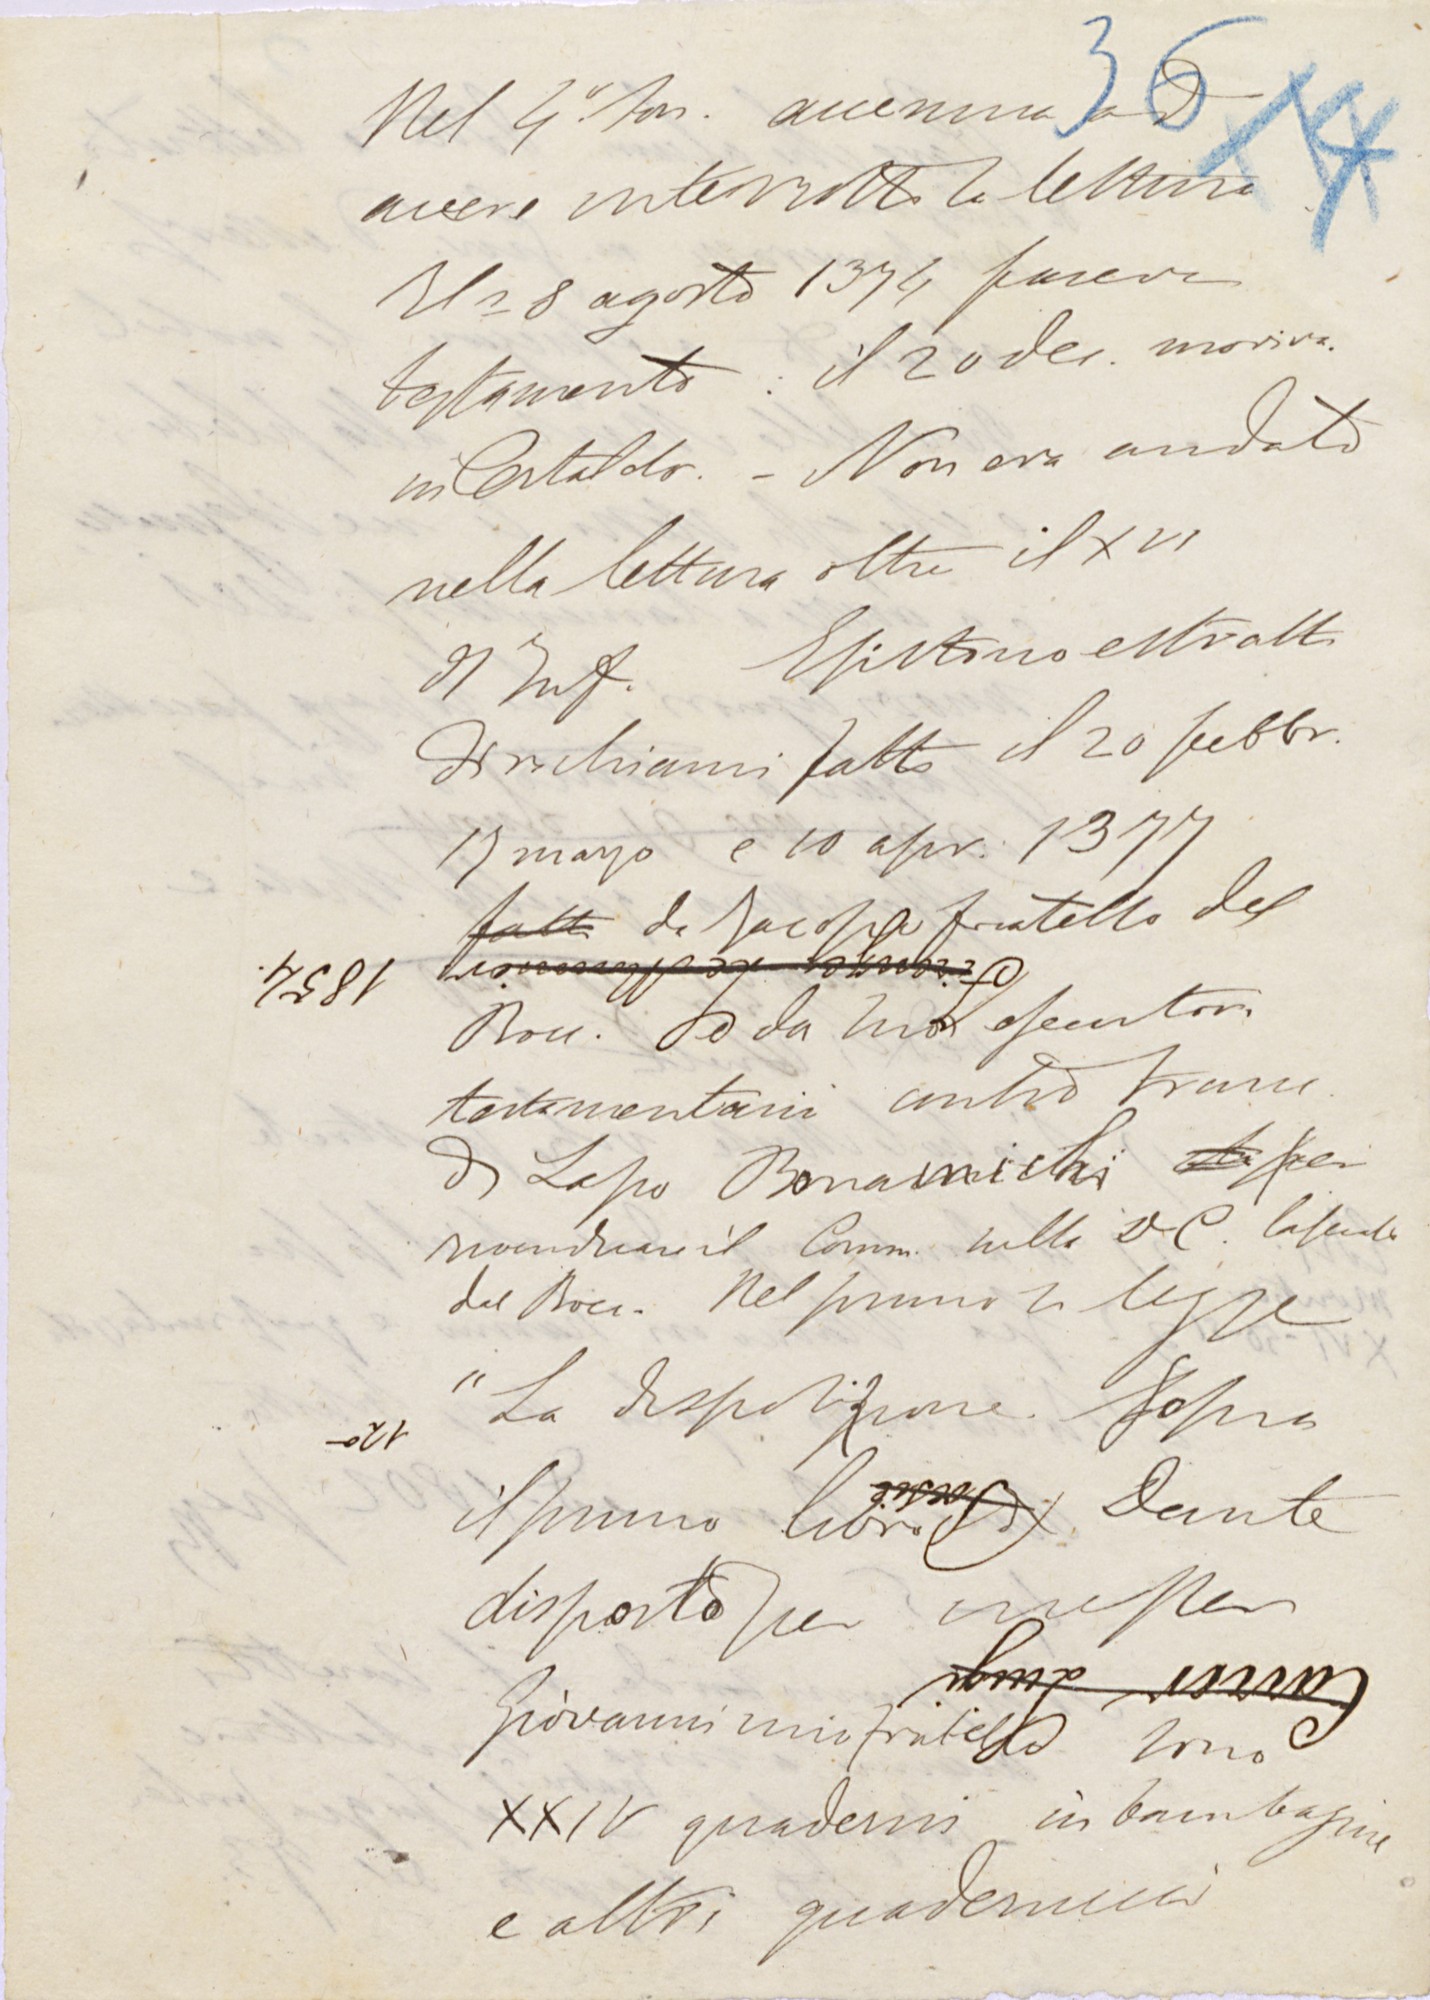 36
Nel 4° son. accenna ad
avere interrotto la lettura
Il 28 agosto 1374 faceva
testamento : il 20 dec. moriva
in Certaldo. - Non era andato
nella lettura oltre il XVI
d Inf. Esistono estratti
di richiami fatti il 20 febbr.
17 marzo e 10 apr. 1377
fatti da Jacopo fratello del
1854
Bocc. e da suoi esecutori
testamentarii contro Franc.
di Lapo Bonamichi per
rivendicare il Comm. sulla D C. lasciato
dal Bocc. Nel primo si legge
"La disposizione sopra
120
il primo libro di Dante
disposto per messer
Luigi
Giovanni mio fratello sono
XXIV quaderni in bambagine
e altri quadernucci